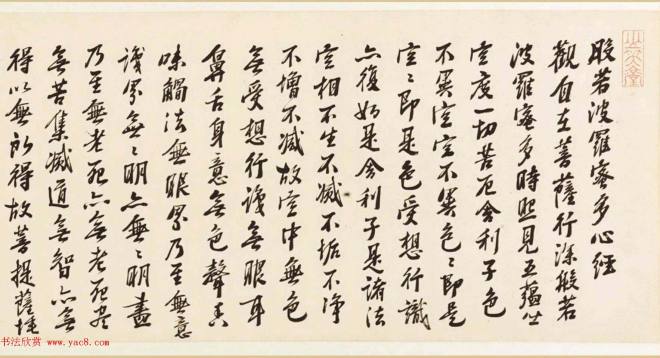 般若波羅蜜多心經
觀自在菩薩行深般若
波羅蜜多時照見五蘊皆
空度一切苦厄舍利子色
不異空空不異色〻即是
空〻即是色受想行識
亦復如是舍利子是諸法
空相不生不滅不垢不淨
不增不減故空中無色
無受想行識無眼耳
鼻舌身意無色聲香
味觸法無眼界乃至無意
識界無〻明亦無〻明盡
乃至無老死亦無老死盡
無苦集滅道無智亦無
得以無所得故菩提薩埵
书法欣赏 www.yac8.com